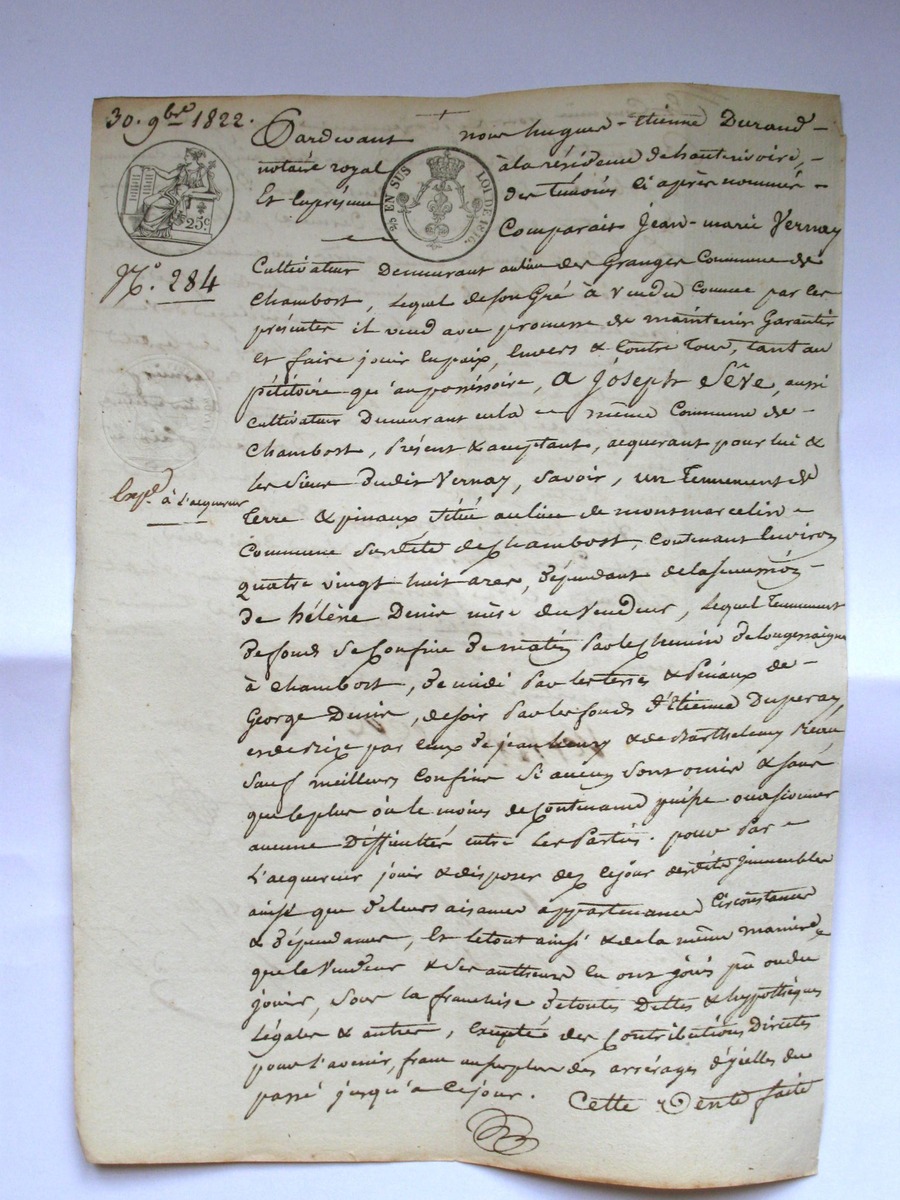 30. 9bre 1822.
Pardevant nous hugues-Etienne Durand-
notaire royal à la résidence de hauterivoire,-
Et En présence des témoins ci après nommés-
25c
2/5 EN SUS LOI DE 1816.
Comparait Jean-marie Vernay
N.° 284
Cultivateur Demeurant au lieu des Granges Commune de
Chambost, Lequel de son Gré à Vendu Comme par les
présentes il vend avec promesse de maintenir Garantir
Et faire jouir En paix, Envers & Contre Tous, tant au
pétitoire qu'au possessoire, à Joseph Sève, aussi
Cultivateur Demeurant en la - même Commune de-
Chambost, Présent & acceptant, acquerant pour lui &
les siens dudit Vernay, Savoir, un Tennement de
Expd. à l'acquereur
Terre & pinaux Situé au lieu de montmarcelin-
Commune Susdite de Chambost, Contenant Environ
quatre vingt huit ares, dépendant de la Succession-
de hélène Denis mère du Vendeur, Lequel Tennement
de fonds Se Confine de matin Par le Chemin de Longessaigne
à Chambost, de midi Par les terres & Pinaux de-
George Denis, de soir Par les fonds d'Etienne Duperay,
et de bize par Ceux de jean & de Barthelemy
Sauf meilleurs Confins Si aucuns Sont omis & Sans
que le plus où le moins de Contenance puisse occasionner
aucune Difficultés entre Les Parties. pour Par-
L'acquereur jouir & disposer dez Ce jour desdits immeubles
ainsi que de leurs aisances appartenances Circonstances
& dépendances, Et le tout ainsi & de la même manière
que le Vendeur & Ses autheurs En ont jouis pû ou du
jouir, Sous la franchise de toutes Dettes & hypothèques
Légales & autres, Exceptée des Contributions Directes
pour l'avenir, franc au surplus des arrérages d'icelles du
passé jusqu'à Ce jour. Cette Vente faite